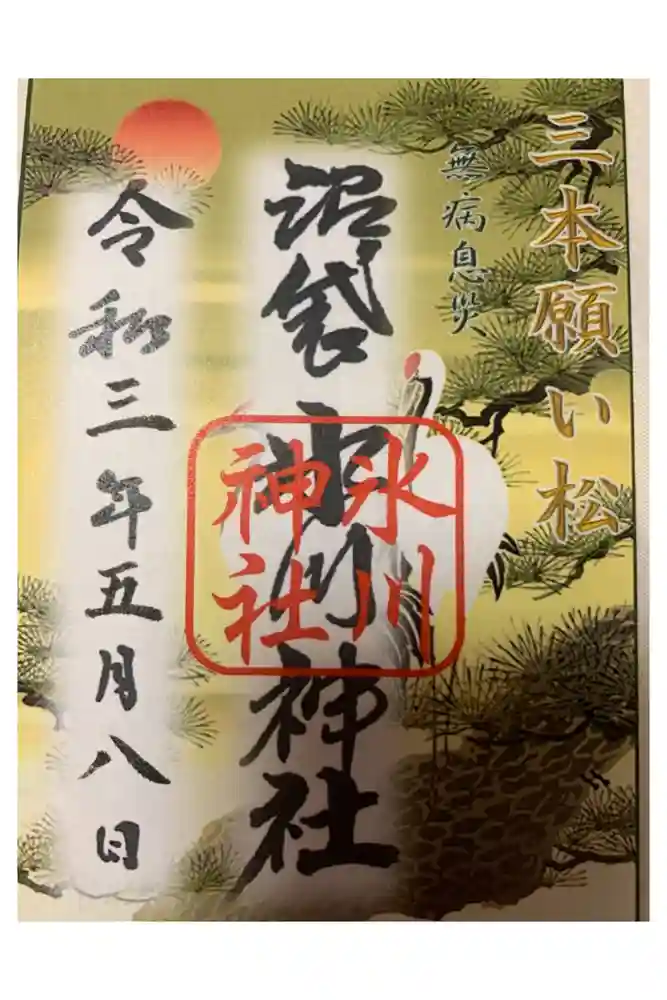 三本願い松
無病息災
沼袋氷川神社
氷川
神社
令和三年五月八日